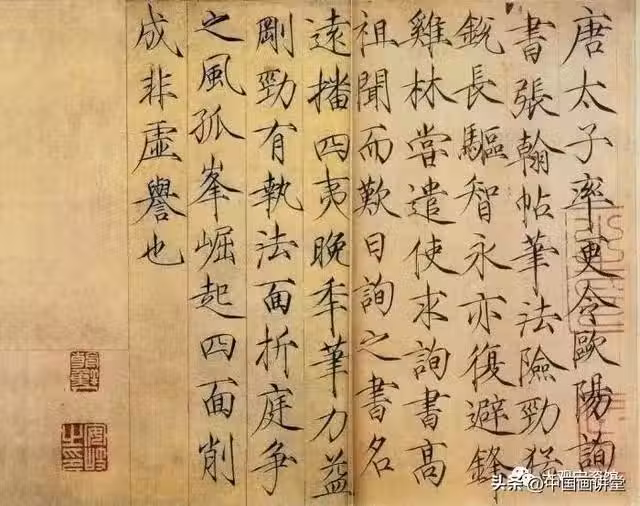 唐太子率更令歐陽詢
書張翰帖筆法險勁猛
銳長驅智永亦復避鋒
雞林嘗遣使求詢書高
祖聞而歎曰詢之書名
遠播四夷晚年筆力益
剛勁有執法面折庭爭
之風孤峯崛起四面削
成非虛譽也
头条@中国画讲堂